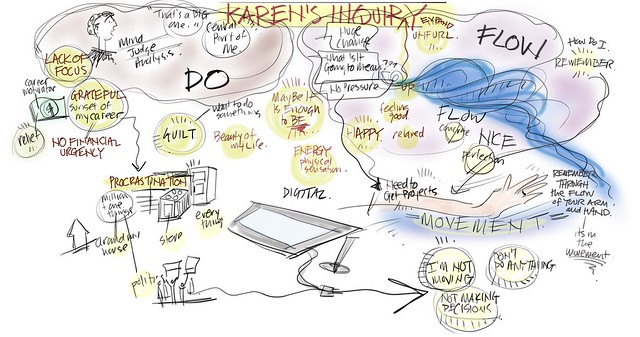 KAREN'S INQUIRY
"That's a BIG
one."
Central
Part of
Me.
Mind
Judge
Analysis.
LACK OF
FOCUS
DO
career
motivator
GRATEFUL
sunset of
my career
relief
NO FINANCIAL
URGENCY
GUILT
want to do
something
Beauty of
my Life.
MayBe It
Is Enough
to BE
ENERGY
physical
sensation
Huge
Change
What is It
Going to Mean?
???
No Pressure
EXPAND
UNFURL.
FLOW
How Do I
REMEMBER
up
feeling
good
HAPPY
relaxed
FLOW
NICE
perfection
PROCRASTINATION
million
+ one
things
around my
house
stove
every
thing
politics
DIGITAL
Need to
Get Projects
MOVEMENT
REMEMBER
THROUGH
the FLOW
of YOUR ARM
and HAND.
its in
the
movement
I'M NOT
MOVING
DON'T
DO ANYTHING
NOT MAKING
DECISIONS